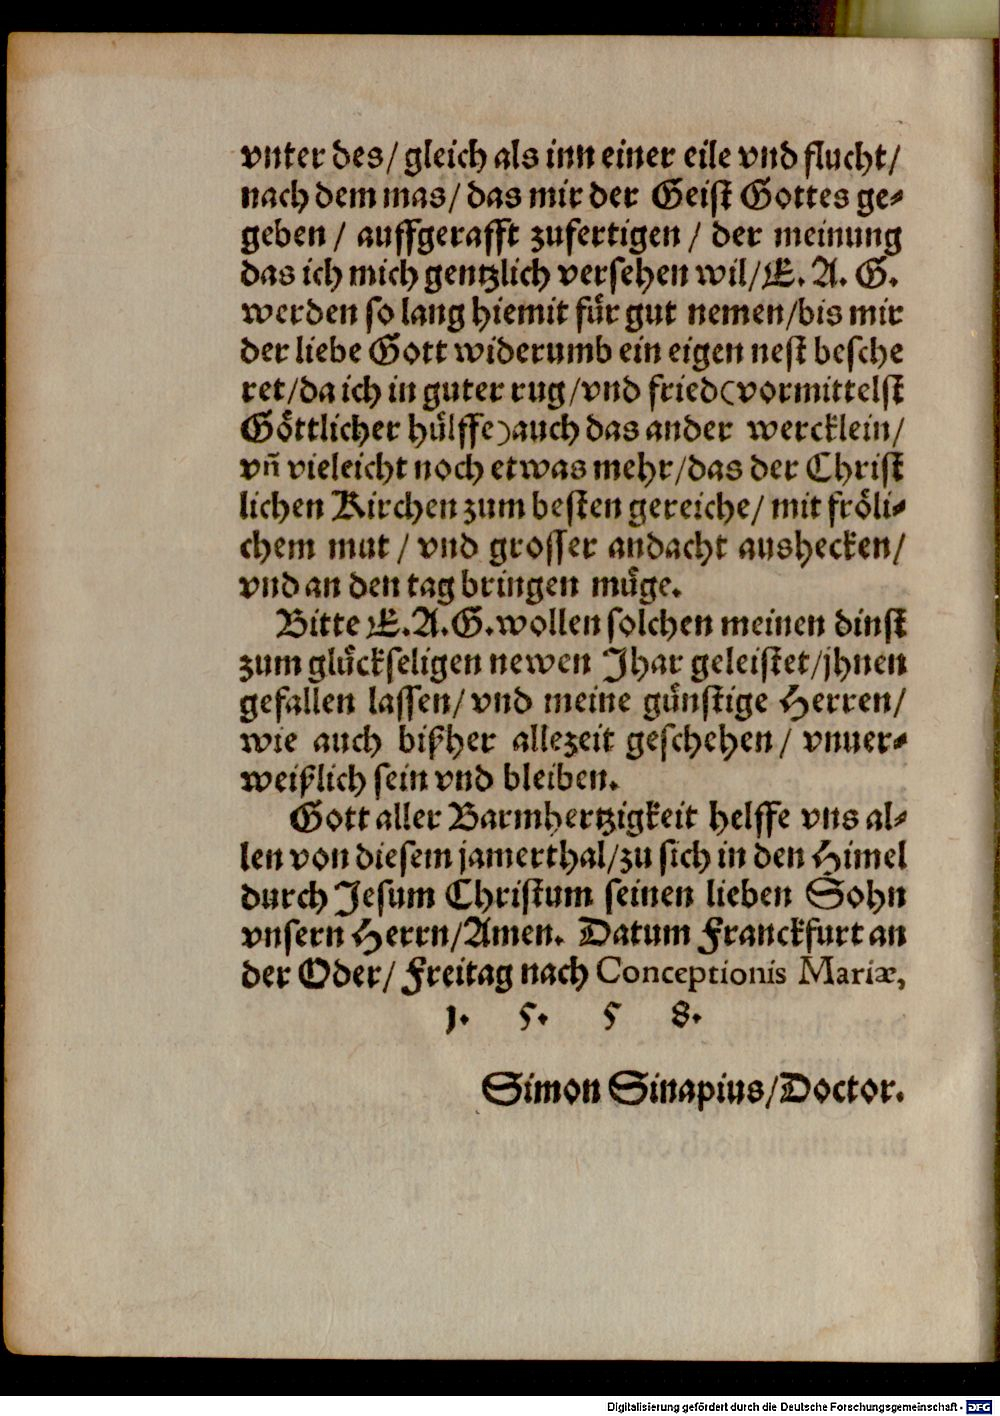 vnter des/ gleich als inn einer eile vnd flucht/
nach dem mas/ das mir der Geist Gottes ge-
geben / auffgerafft zufertigen / der meinung
das ich mich gentzlich versehen wil/ E. A. G.
werden so lang hiemit fuͤr gut nemen/bis mir
der liebe Gott widerumb ein eigen nest besche
ret/da ich in guter rug/vnd fried(vormittelst
Goͤttlicher huͤlffe)auch das ander wercklein/
vñ vieleicht noch etwas mehr/das der Christ
lichen Kirchen zum besten gereiche/ mit froͤli-
chem mut / vnd grosser andacht aushecken/
vnd an den tag bringen muͤge.
Bitte E.A.G.wollen solchen meinen dinst
zum gluͤckseligen newen Jhar geleistet/jhnen
gefallen lassen/ vnd meine guͤnstige Herren/
wie auch bißher allezeit geschehen/ vnuer-
weißlich sein vnd bleiben.
Gott aller Barmhertzigkeit helffe vns al-
len von diesem jamerthal/zu sich in den Himel
durch Jesum Christum seinen lieben Sohn
vnsern Herrn/Amen. Datum Franckfurt an
der Oder/ Freitag nach Conceptionis Mariæ,
1. 5. 5 8.
Simon Sinapius/Doctor.
Digitalisierung gefördert durch die Deutsche Forschungsgemeinschaft - DFG